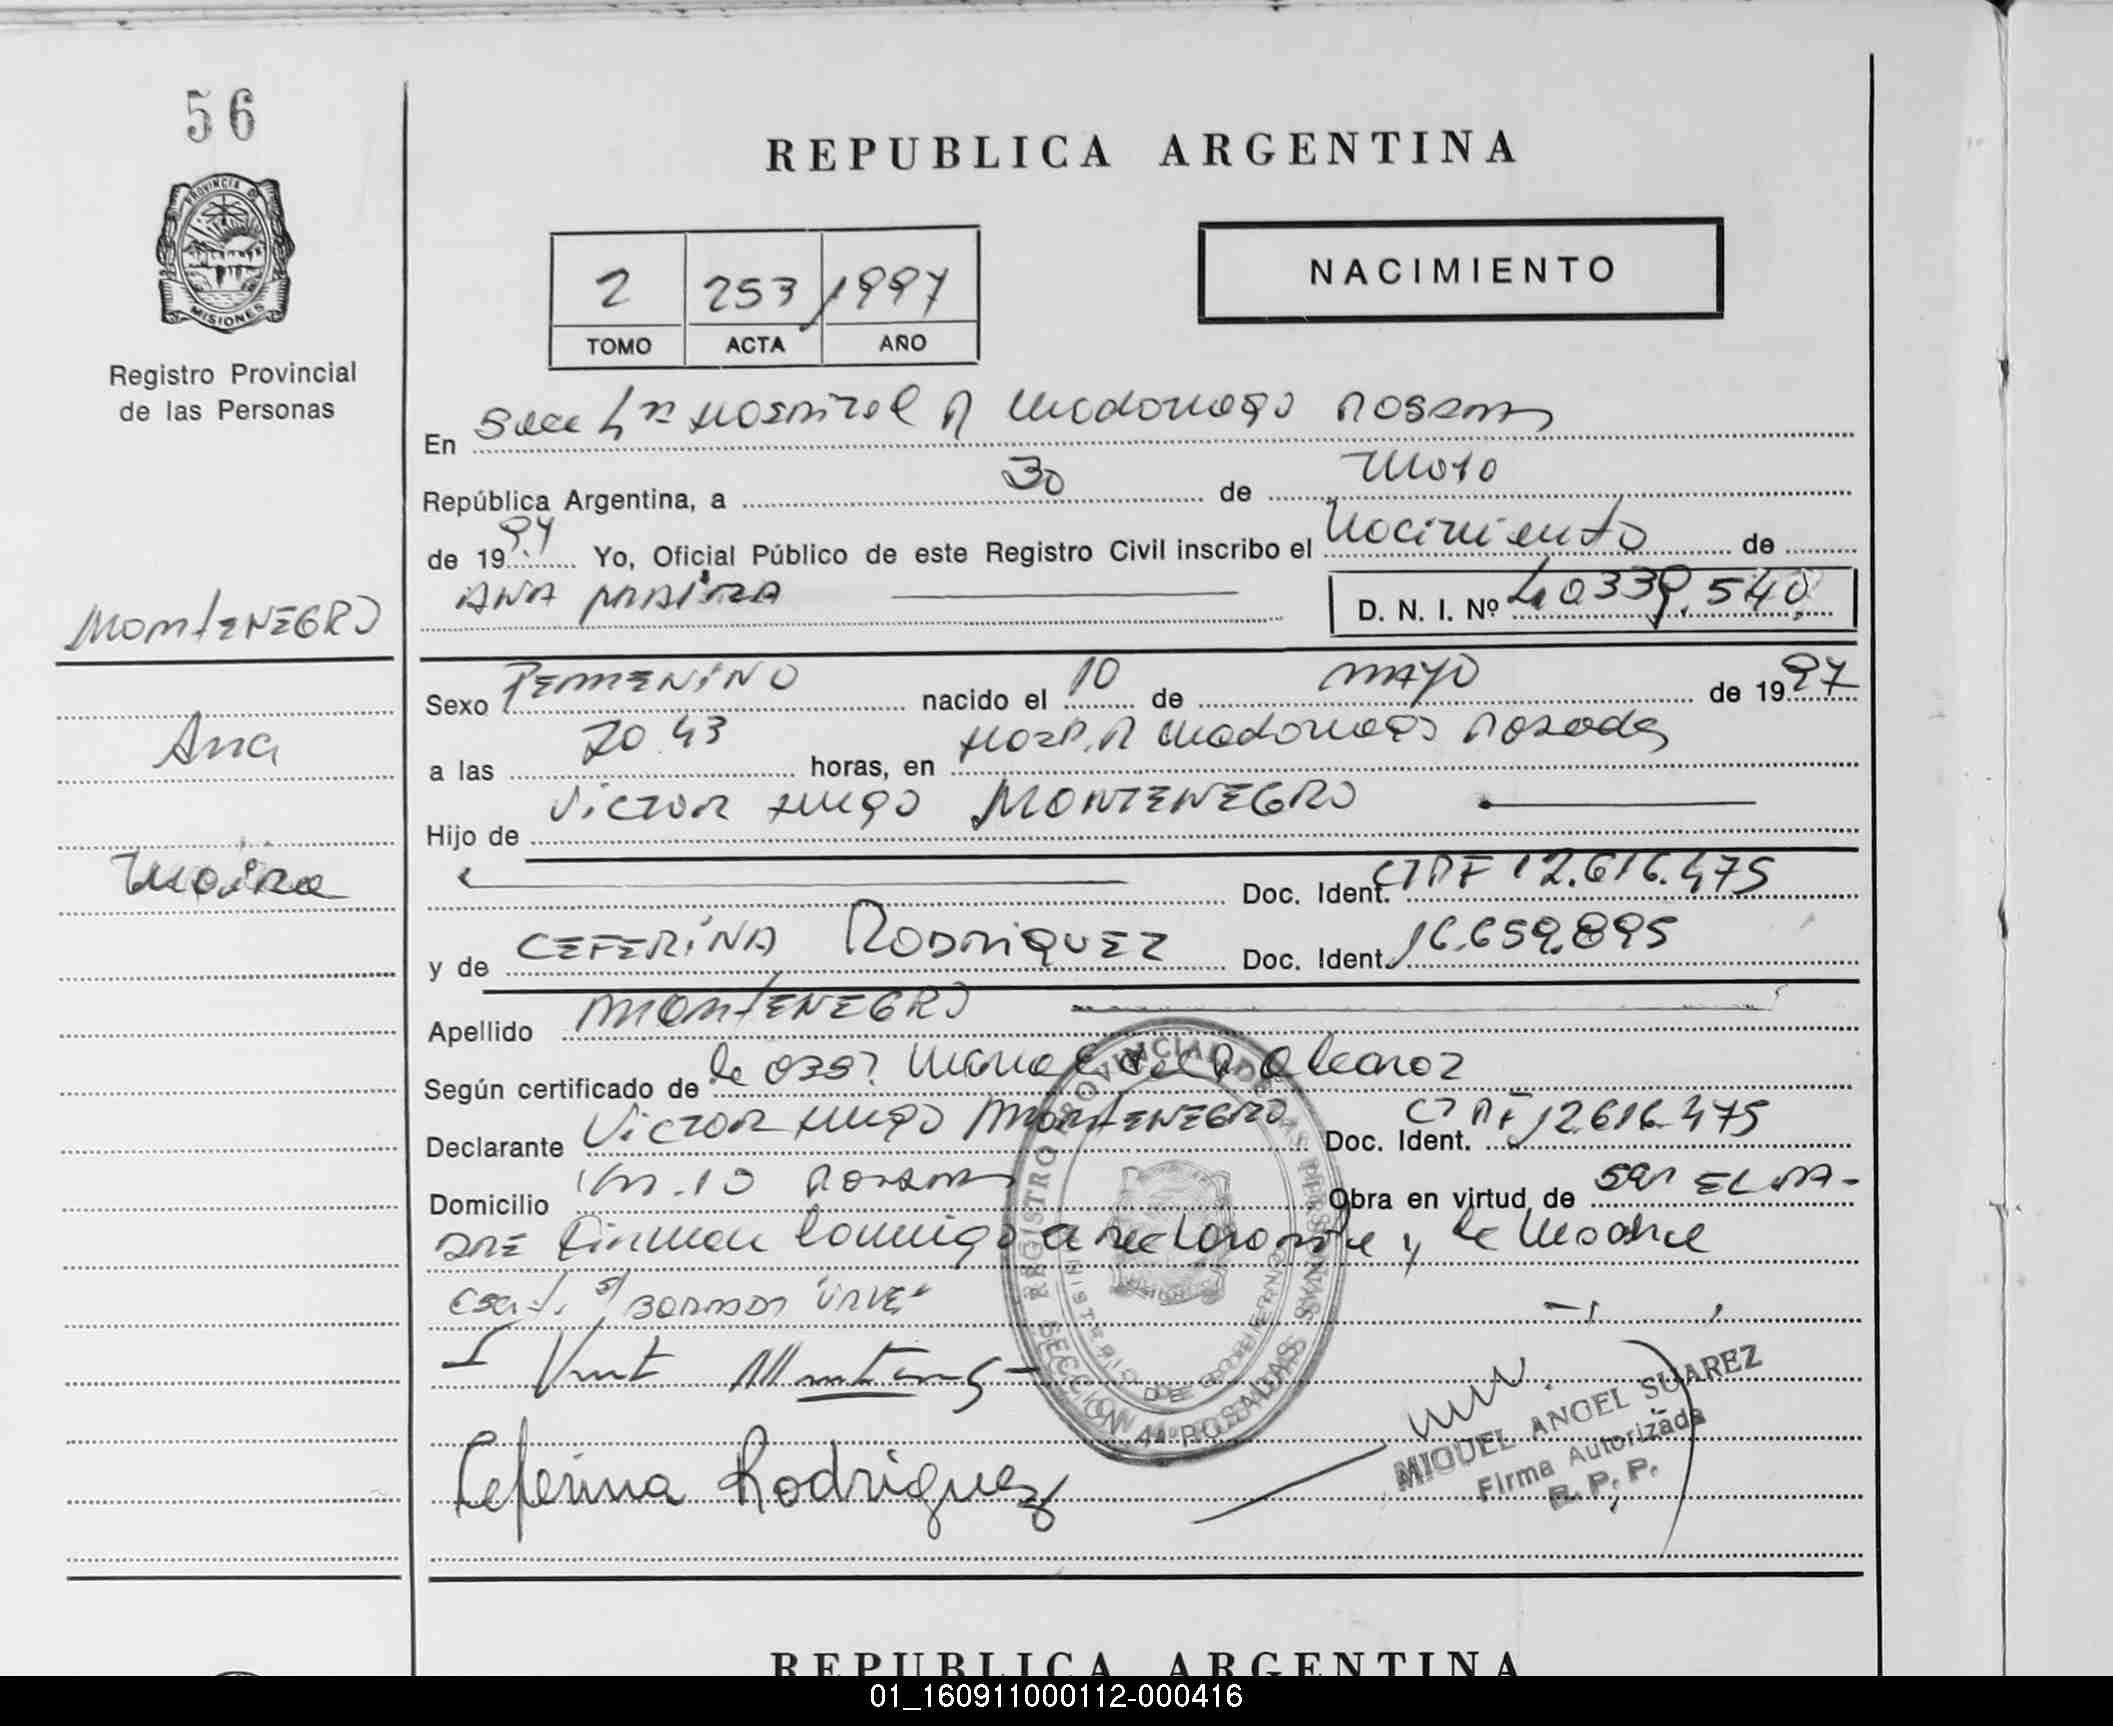 56
PROVINCIA DE
MISIONES
Registro Provincial
de las Personas
REPUBLICA ARGENTINA
2 253 1997
TOMO ACTA AÑO
NACIMIENTO
En Secc 4ta Hospital R Madariaga Posadas
República Argentina, a 30 de Mayo
de 1997 Yo, Oficial Público de este Registro Civil inscribo el Nacimiento de
ANA MAIRA D. N. I. Nº 40339.540
MONTENEGRO
Ana
Maira
Sexo FEMENINO nacido el 10 de MAYO de 1997
a las 20.43 horas, en Hosp. R Madariaga Posadas
Hijo de VICTOR HUGO MONTENEGRO
Doc. Ident. 12.616.475
y de CEFERINA RODRIGUEZ Doc. Ident. 16.659.895
Apellido MONTENEGRO
Según certificado de la Alcaraz
Declarante VICTOR HUGO MONTENEGRO Doc. Ident. 12.616.475
Domicilio Posadas Obra en virtud de ser EL PA-
DRE Firman conmigo el declarante y la Madre
REGISTRO PROVINCIAL DE LAS PERSONAS
MINISTERIO DE GOBIERNO
SECCION 4ª POSADAS
Ceferina Rodriguez
MIGUEL ANGEL SUAREZ
Firma Autorizada
R. P. P.
REPUBLICA ARGENTINA
01_160911000112-000416